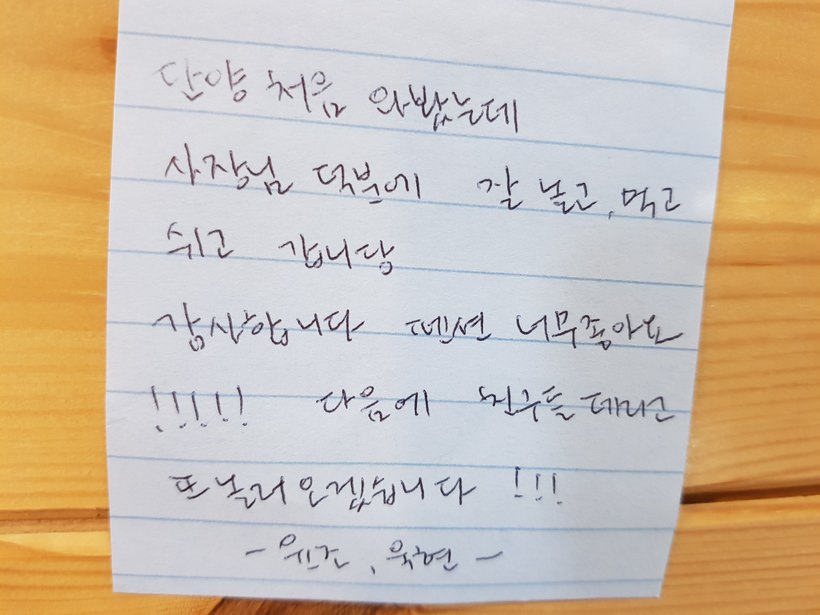 단양 처음 와봤는데
사장님 덕분에 잘 놀고, 먹고
쉬고 갑니당
감사합니다 펜션 너무좋아요
!!!!!! 다음에 친구들 데리고
또 놀러오겠습니다 !!!